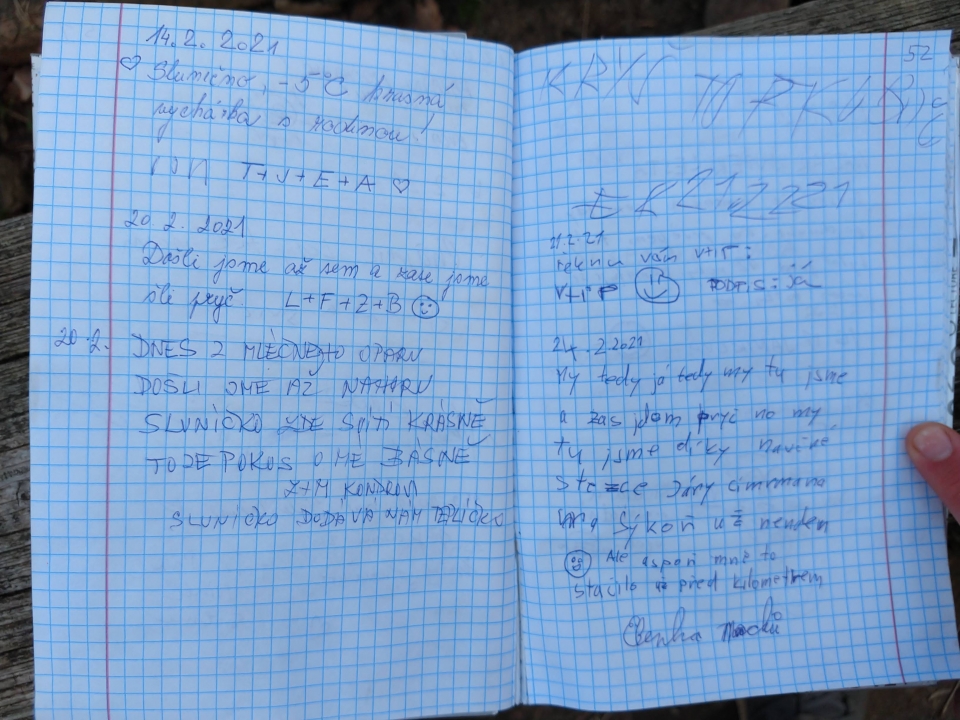 14.2. 2021
♡ Sluníčko, -5°C krásná
vycházka s rodinou!
T+J+E+A ♡
20.2. 2021
Došli jsme až sem a zase jsme
šli pryč. L+F+Z+B ☺
20.2. DNES Z MLÉČNÉHO OPARU
DOŠLI JSME AŽ NAHORU
SLUNÍČKO ZDE SVÍTÍ KRÁSNĚ
TO JE POKUS O MÉ BÁSNĚ
Z+M
SLUNÍČKO DODÁVÁ NÁM TEPLÍČKO
52
21.2.21
řeknu vám vtip:
vtip ☺ PODPIS: já
24.2.2021
My tedy já tedy my tu jsme
a zas jdem pryč no my
tu jsme díky naučné
stezce Járy cimrmana
Sýkoř už nendem
☺ Ale aspoň mně to
stačilo před kilometrem
Lenka